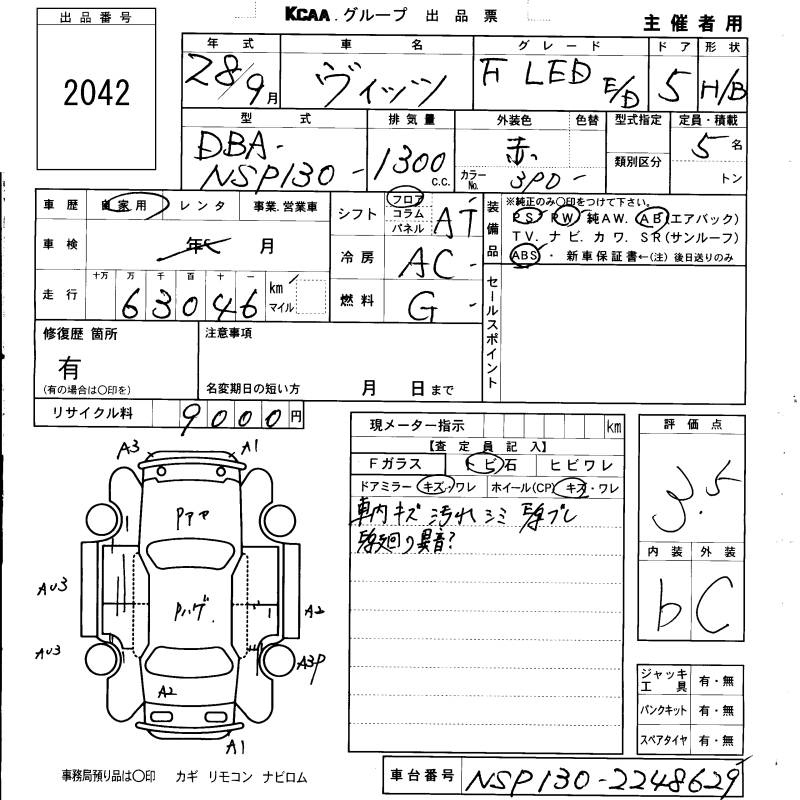 KCAA.グループ 出品票
主催者用
出品番号
2042
年式 車名 グレード ドア 形状
28/9月 ヴィッツ F LED E/D 5 H/B
型式 排気量 外装色 色替 型式指定 定員・積載
DBA- NSP130- 1300 c.c. 赤 カラーNo. 3P0- 類別区分 5名
トン
車歴 自家用 レンタ 事業.営業車
シフト フロア コラム パネル AT
装備品 ※純正のみ〇印をつけて下さい。
PS PW 純AW. AB(エアバック)
TV. ナビ. カワ. SR(サンルーフ)
ABS・新車保証書←(注)後日送りのみ
車検 年 月
冷房 AC-
走行 十万 万 千 百 十 一
63046 km マイル
燃料 G-
セールスポイント
修復歴 箇所
有
(有の場合は〇印を)
注意事項
名変期日の短い方 月 日まで
リサイクル料 9000円
現メーター指示 km
【査定員記入】
Fガラス トビ石 ヒビワレ
ドアミラー キズ・ワレ ホイール(CP) キズ・ワレ
車内キズ 汚れ シミ
異音?
評価点
3.5
内装 外装
b C
A3 A1
Pアマ
AU3 Pハゲ. A2
AU3 A3P
A2
A1
ジャッキ工具 有・無
パンクキット 有・無
スペアタイヤ 有・無
事務局預り品は〇印 カギ リモコン ナビロム
車台番号 NSP130-2248629